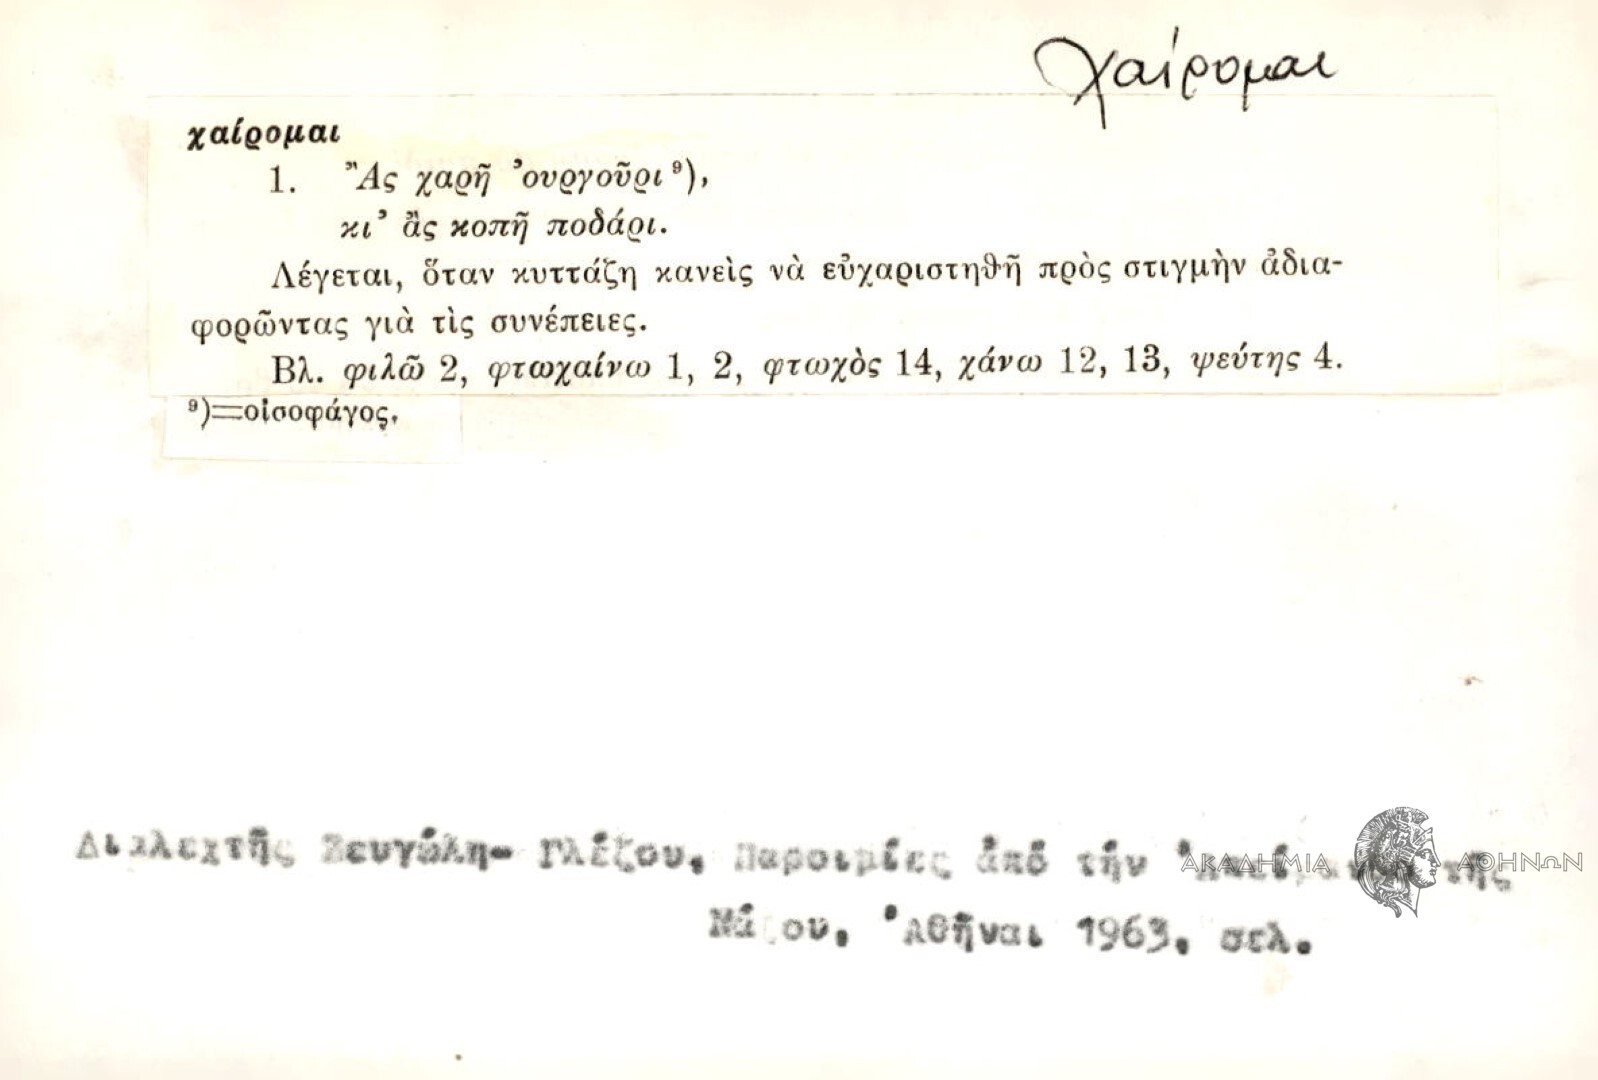 χαίρομαι
χαίρομαι
1. Ἂς χαρῇ ᾿ουργοῦρι ⁹),
κι᾿ ἂς κοπῇ ποδάρι.
Λέγεται, ὅταν κυττάζη κανεὶς νὰ εὐχαριστηθῇ πρὸς στιγμὴν ἀδια-
φορῶντας γιὰ τὶς συνέπειες.
Βλ. φιλῶ 2, φτωχαίνω 1, 2, φτωχὸς 14, χάνω 12, 13, ψεύτης 4.
⁹)=οἰσοφάγος.
Διαλεχτῆς Ζευγώλη- Γλέζου, Παροιμίες ἀπὸ τὴν τῆς
ΑΚΑΔΗΜΙΑ ΑΘΗΝΩΝ
Νάξου, Ἀθῆναι 1963, σελ.